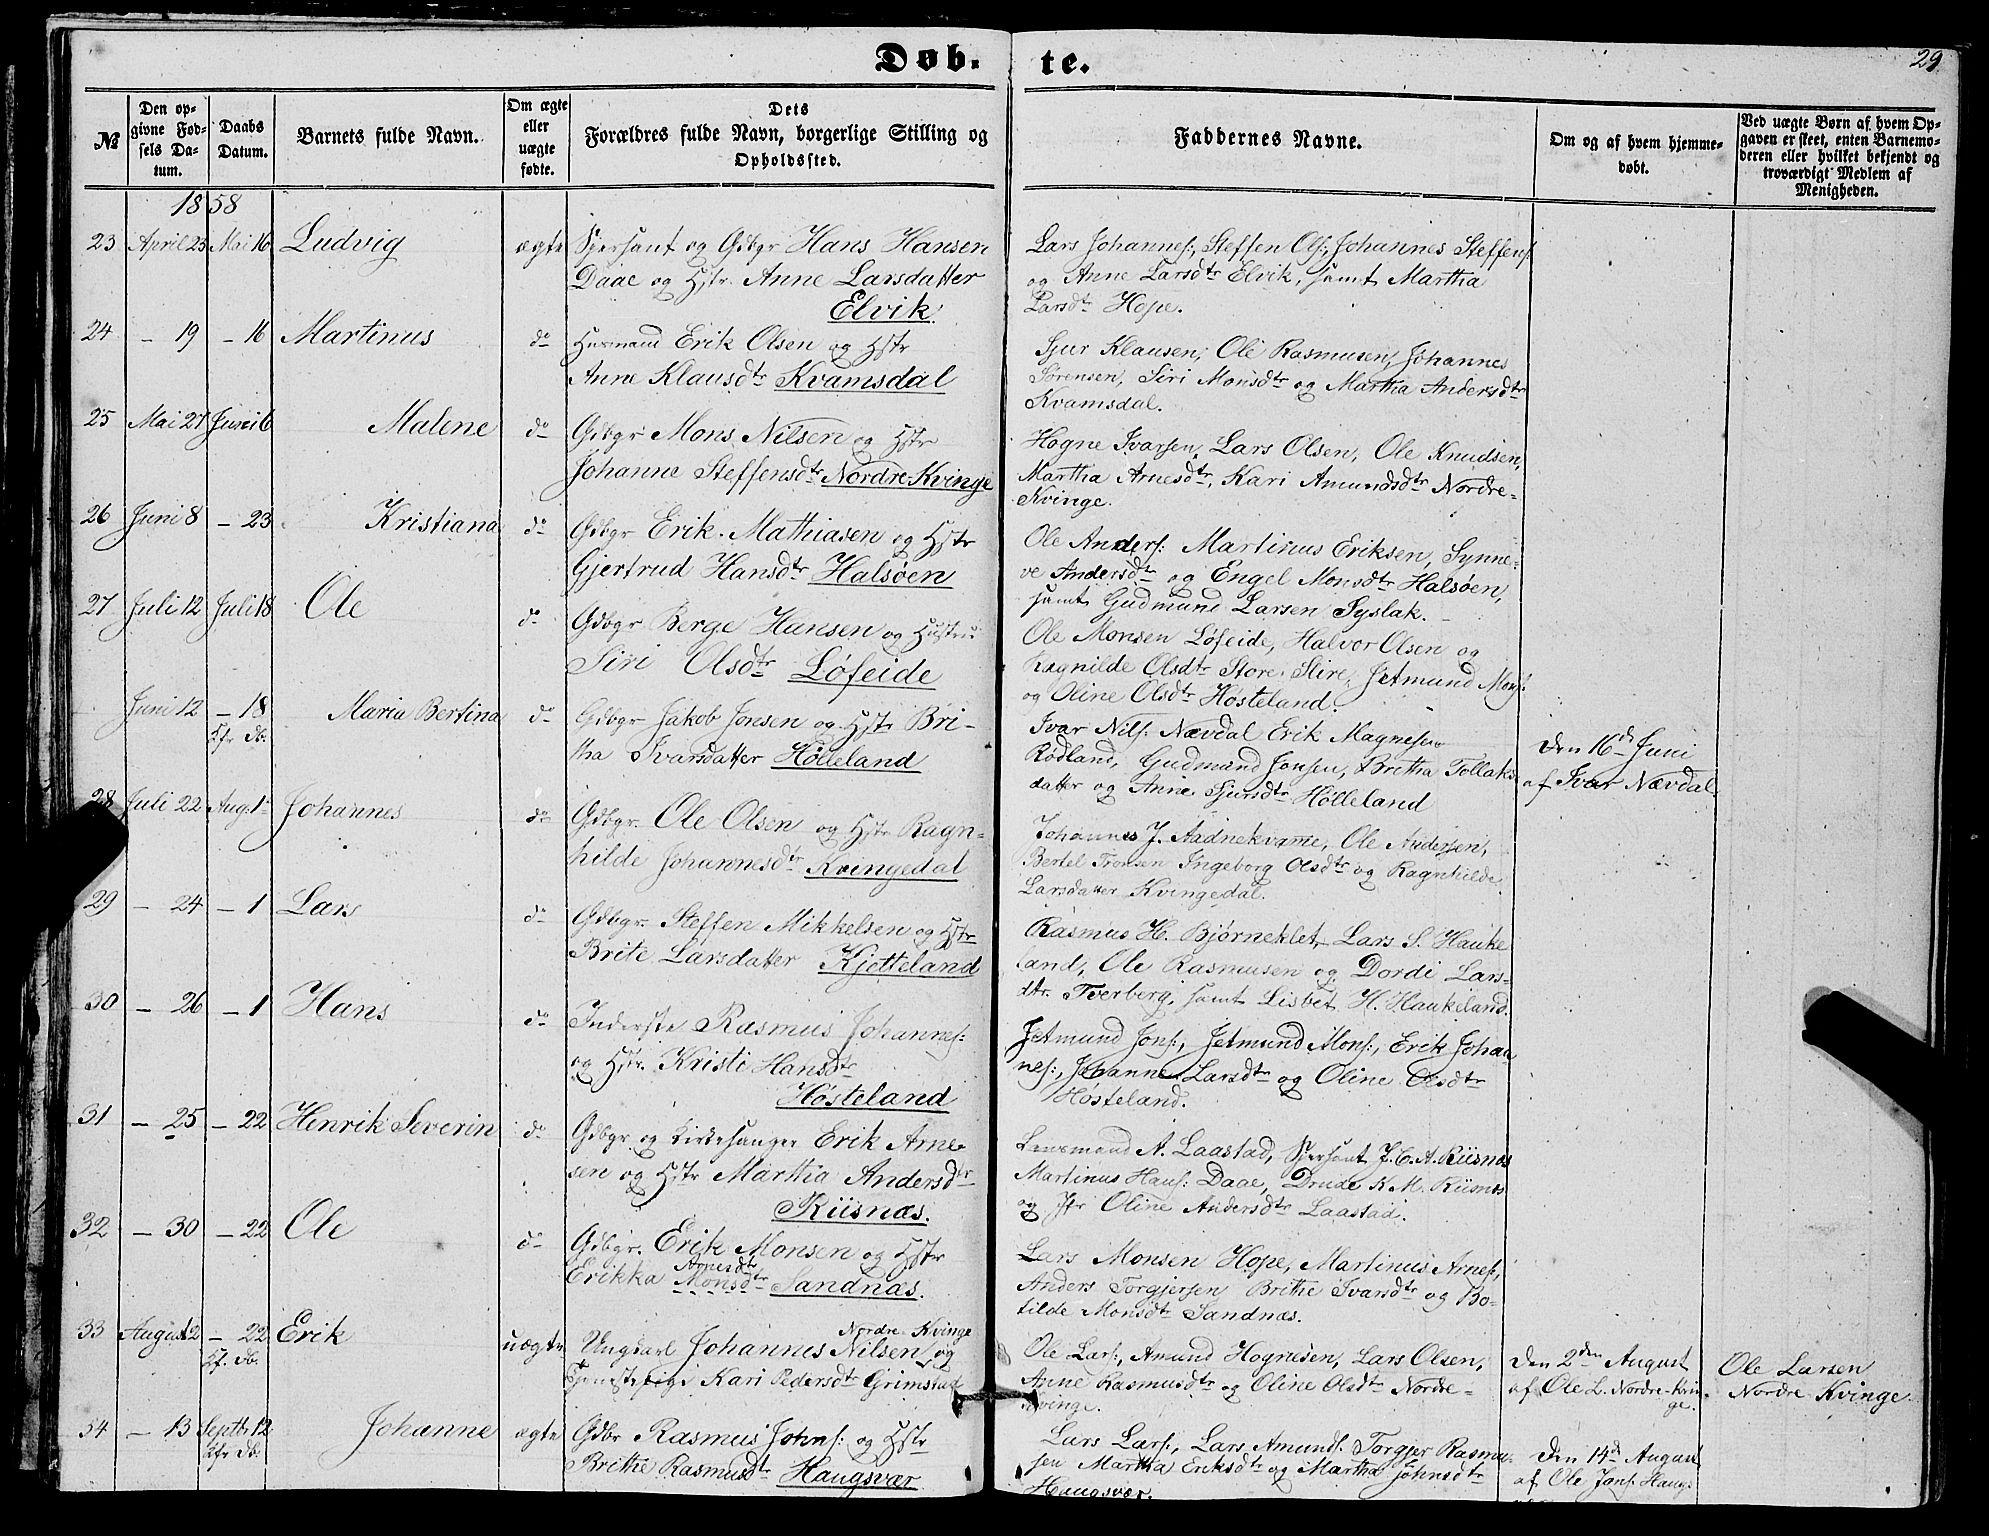 Døb-te.
29
№
Den op-
givne Fød-
sels Da-
tum.
Daabs
Datum.
Barnets fulde Navn.
Om ægte
eller
uægte
fødte.
Dets
Forældres fulde Navn, borgerlige Stilling og
Opholdssted.
Faddernes Navne.
Om og af hvem hjemme-
døbt.
Ved uægte Børn af hvem Op-
gaven er skeet, enten Barnemo-
deren eller hvilket bekjendt og
troværdigt Medlem af
Menigheden.
1858
23 April 25 Mai 16 Ludvig ægte Sjersant og Gdbgr Hans Hansen
Daae og Hstr. Anne Larsdatter
Elvik.
Lars Johannes:, Steffen Ols:, Johannes Steffens:
og Anne Larsdtr Elvik, samt Martha
Larsdtr Hope.
24 – 19 – 16 Martinus do Husmand Erik Olsen og Hstr
Anne Klausdtr Kvamsdal
Sjur Klausen, Ole Rasmusen, Johannes
Sørensen, Siri Monsdtr og Martha Andersdtr
Kvamsdal.
25 Mai 27 Juni 6 Malene do Gdbgr Mons Nilsen og Hstr
Johanne Steffensdtr Nordre Kvinge
Hogne Ivarsen, Lars Olsen, Ole Knudsen,
Martha Arnesdtr, Kari Amundsdtr Nordre-
Kvinge.
26 Juni 8 – 23 Kristiana do Gdbgr Erik Mathiasen og Hstr
Gjertrud Hansdtr Halsøen
Ole Anders: Martinus Eriksen, Synne-
ve Andersdtr og Engel Monsdtr Halsøen,
samt Gudmund Larsen Syslak.
27 Juli 12 Juli 18 Ole do Gdbgr Berge Hansen og Hustru
Siri Olsdtr Løfeide
Ole Monsen Løfeide, Halvor Olsen og
Ragnilde Olsdtr Store Slire, Jetmund Mons:
og Oline Olsdtr Høsteland.
Juni 12 – 18 Maria Bertina do Gdbgr Jakob Jonsen og Hstr Bri-
Kfr db. tha Ivarsdatter Hølleland
Ivar Nils: Nævdal Erik Magnesen
Rødland, Gudmand Jonsen, Britha Tollaks
datter og Anne Sjursdtr Hølleland
Den 16de Juni
af Ivar Nævdal.
28 Juli 22 Aug. 1 Johannes do Gdbgr. Ole Olsen og Hstr Ragn-
hilde Johannesdtr Kvingedal
Johannes J. Aadnekvame, Ole Andersen,
Bertel Tronsen Ingeborg Olsdtr og Ragnhilde
Larsdatter Kvingedal.
29 – 24 – 1 Lars do Gdbgr. Steffen Mikkelsen og Hstr
Brite Larsdatter Kjetteland
Rasmus H. Bjørneklet, Lars S. Hauke
land, Ole Rasmusen og Dordi Lars-
dtr. Tverberg, samt Lisbet H. Haukeland.
30 – 26 – 1 Hans do Inderste Rasmus Johannes:
og Hstr. Kristi Hansdtr
Høsteland
Jetmund Jons:, Jetmund Mons:, Erik Johan
nes:, Johanne Larsdtr og Oline Olsdtr
Høsteland.
31 – 25 – 22 Henrik Severin do Gdbgr og Kirkesanger Erik Arne-
sen og Hstr Martha Andersdtr
Riisnæs.
Lensmand A. Laastad, Sjersant J. C. A. Riisnæs
Martinus Hans: Daae, Drude K M. Riisnæs
og Jfr Oline Andersdtr Laastad.
32 – 30 – 22 Ole do Gdbgr. Erik Monsen og Hstr
Arnesdtr
Erikka Monsdtr Sandnæs.
Lars Monsen Hope, Martinus Arnes:,
Anders Torgjersen Brithe Ivarsdtr og Bo-
tilde Monsdtr Sandnæs.
33 August 2 – 22 Erik uægte Ungkarl Johannes Nilsen og
Nordre Kvinge
Kf. db. Tjenestepige Kari Pedersdtr Grimstad
Ole Lars:, Amund Hognesen, Lars Olsen,
Anne Rasmusdtr og Oline Olsdtr Nordre-
Kvinge.
Den 2den August
af Ole L. Nordre-Kvin-
ge.
Ole Larsen
Nordre Kvinge.
34 – 13 Septb. 12 Johanne ægte Gdbr Rasmus Johns: og Hstr
Kfr db. Brithe Rasmusdtr Haugsvær
Lars Lars:, Lars Amunds: Torgjer Rasmu-
sen Martha Eriksdtr og Martha Johnsdtr
Haugsvær.
Den 14de August
af Ole Jons: Haugs